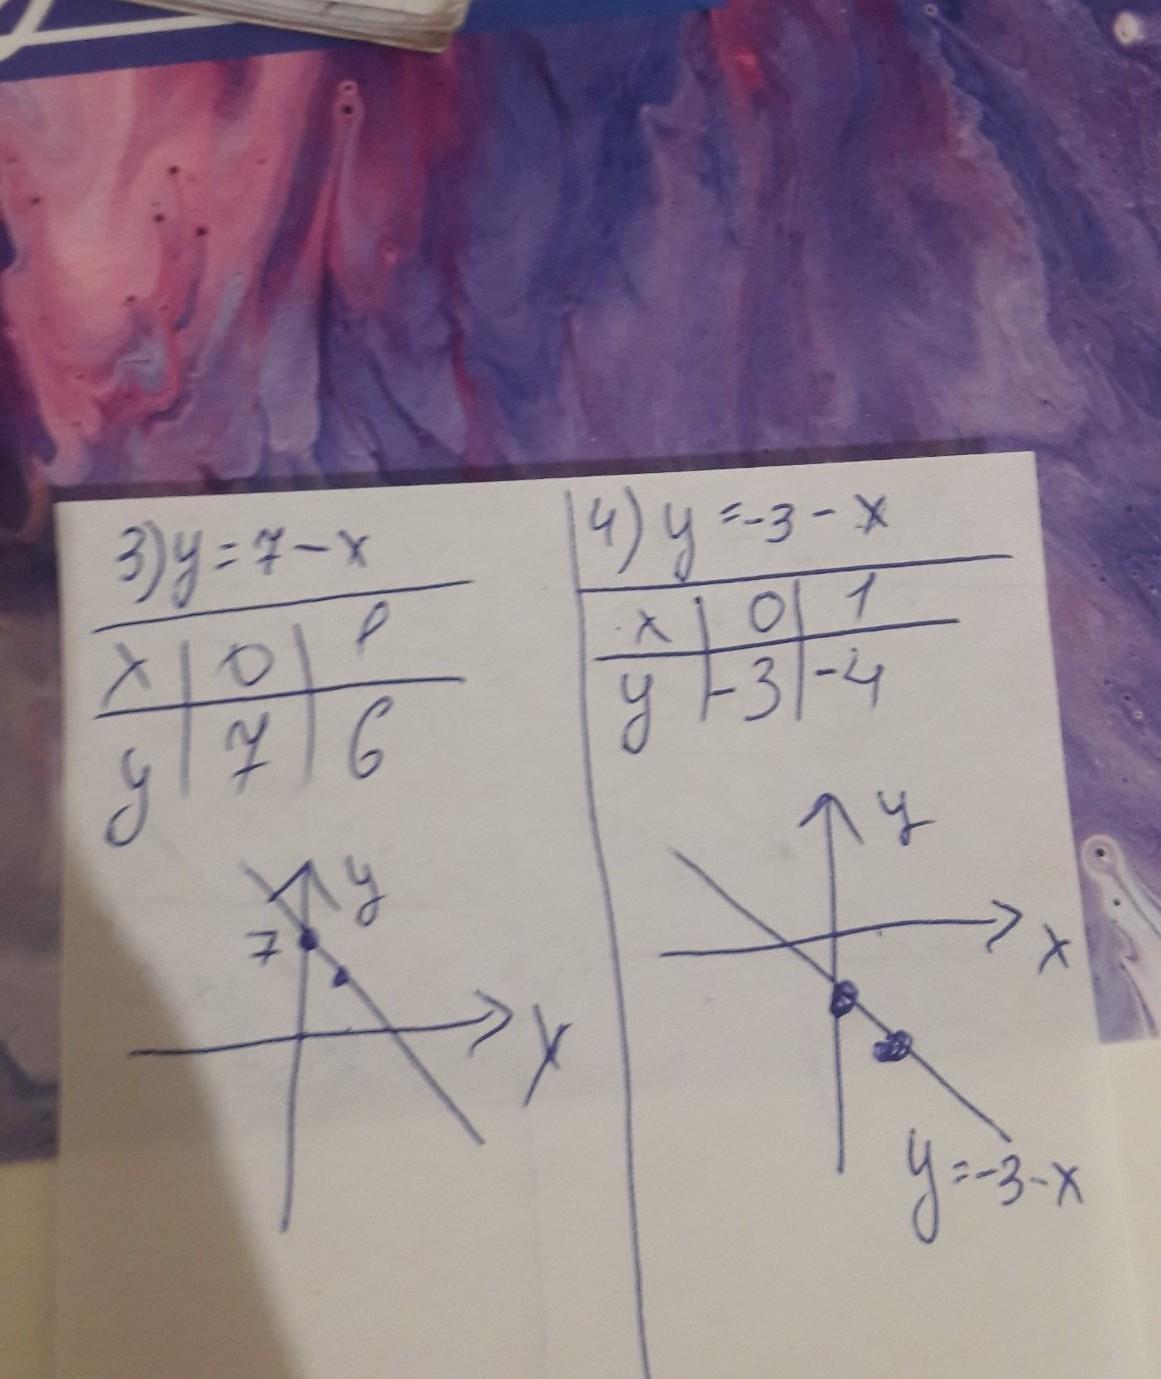 3) y = 7 - x
x | 0 | 1
y | 7 | 6
y
7
x
4) y = -3 - x
x | 0 | 1
y | -3 | -4
y
x
y = -3 - x